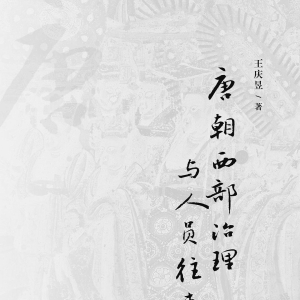 王庆昱/著
唐朝西部治理
与人员往